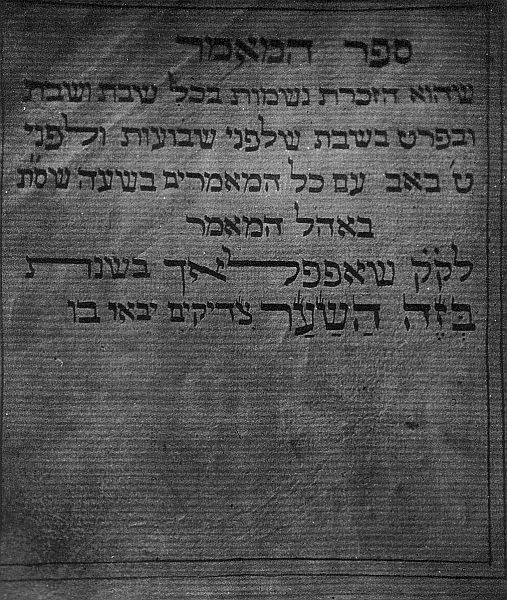 ספר המאמר
שהוא הזכרת נשמות בכל שבת ושבת
ובפרט בשבת שלפני שבועות ולפני
ט׳ באב עם כל המאמרים בשעה שס״ת
באהל המאמר
לק״ק שאפפלאך בשנת
בְּזֶה הַשַּׁעַר צדיקים יבאו בו